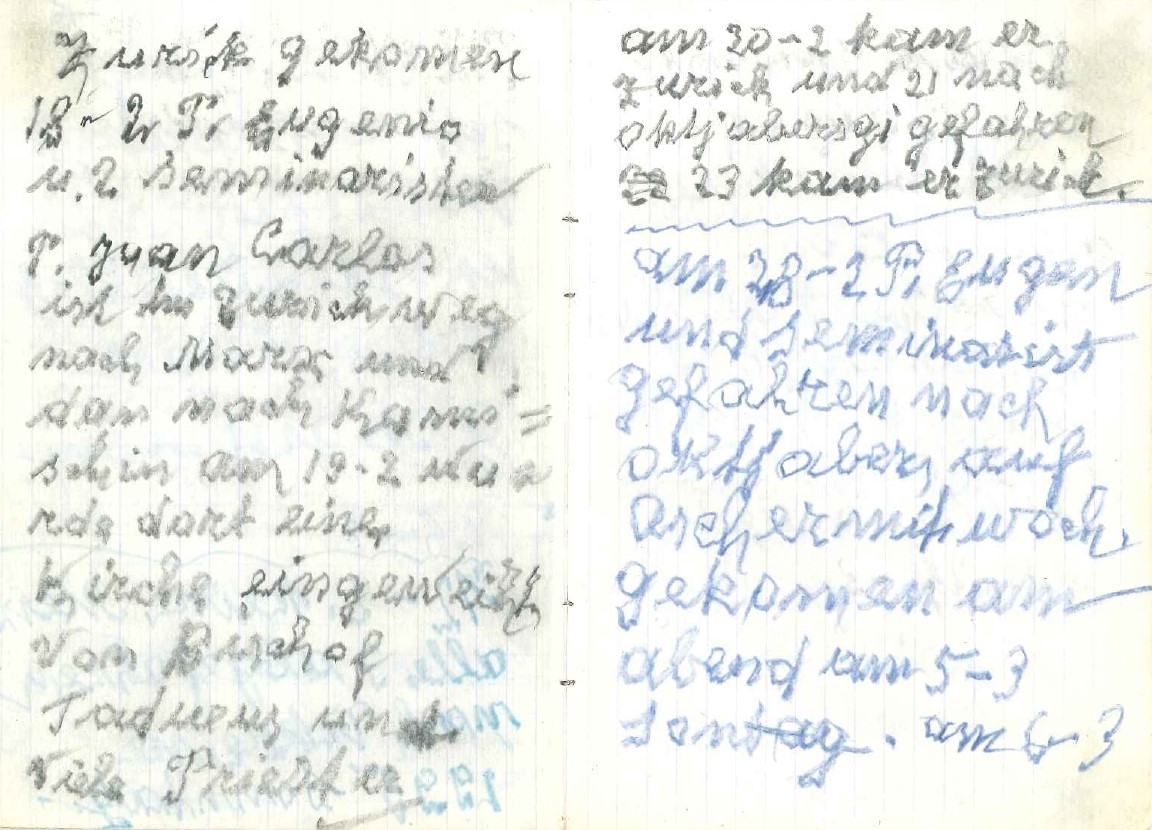 Zurük gekomen
18-2 P. Eugenio
u. 2 Seminaristen
P. Juan Carlos
ist in zurich weg
nach Marx und
dan nach Kami=
schin am 19-2 wu
rde dort eine
Kirche eingeweiht
von Bischof
Tadueuz und
viele Priester
am 20-2 kam er
zurick und 21 nach
oktjabersgi gefahren
23 kam er zurick.
am 28-2 P. Eugen
und Seminarist
gefahren nach
oktjaber, auf
Aschermitwoch.
gekomen am
abend am 5-3
Sontag. am 6-3